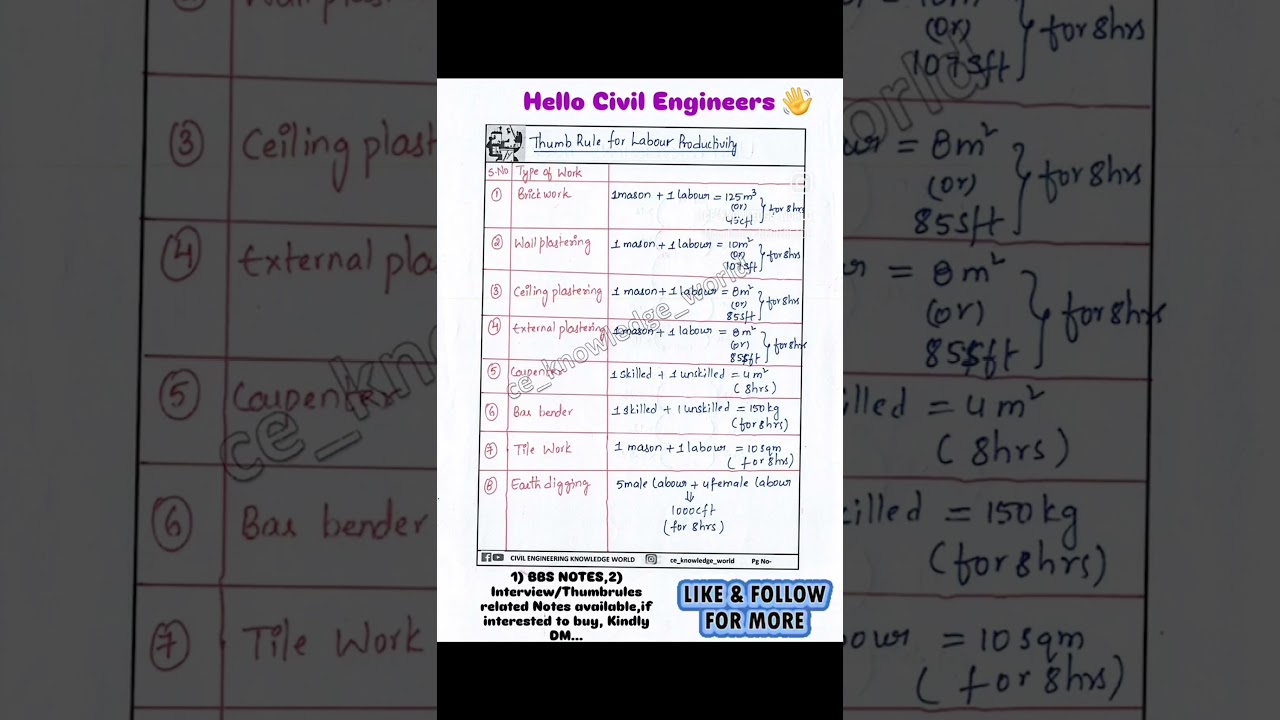 Hello Civil Engineers 👋
Thumb Rule for Labour Productivity
S.No Type of Work
① Brickwork 1mason + 1 labour = 125m³
(or)
45cft
for 8hrs
② Wall plastering 1 mason + 1 labour = 10m²
(or)
107sft
for 8hrs
③ Ceiling plastering 1 mason + 1 labour = 8m²
(or)
85sft
for 8hrs
④ External plastering 1 mason + 1 labour = 8m²
(or)
85sft
for 8hrs
⑤ Carpenter 1 skilled + 1 unskilled = 4m²
(8hrs)
⑥ Bar bender 1 skilled + 1 unskilled = 150kg
(for 8hrs)
⑦ Tile Work 1 mason + 1 labour = 10sqm
(for 8hrs)
⑧ Earth digging 5male labour + 4female labour
⇓
1000cft
(for 8hrs)
ce_knowledge_world
CIVIL ENGINEERING KNOWLEDGE WORLD ce_knowledge_world Pg No-
1) BBS NOTES,2)
Interview/Thumbrules
related Notes available,if
interested to buy, Kindly
DM...
LIKE & FOLLOW
FOR MORE